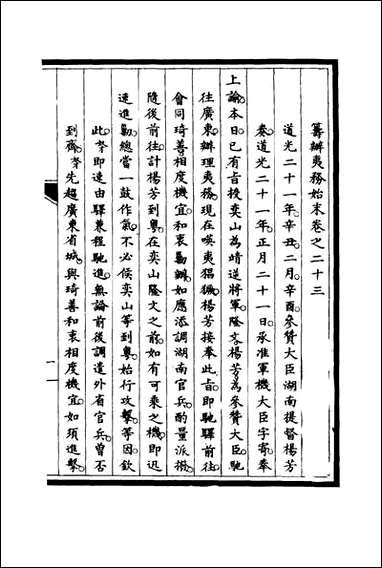 籌辦夷務始末卷之二十三
道光二十一年辛丑二月辛酉參贊大臣湖南提督楊芳
奏道光二十一年正月二十一日承准軍機大臣字寄奉
上諭本日已有旨授奕山為靖逆將軍隆文楊芳為參贊大臣馳
往廣東辦理夷務現在㗎夷猖獗楊芳接奉此旨即馳驛前往
會同琦善相度機宜和衷勦辦如應添調湖南官兵酌量派撥
隨後前往計楊芳到粵在奕山隆文之前如有可乘之機即迅
速進勦總當一鼓作氣不必候奕山等到粵始行攻擊等因欽
此臣即速由驛兼程馳進無論前後調遣外省官兵曾否
到齊臣先趨廣東省城與琦善和衷相度機宜如須進擊